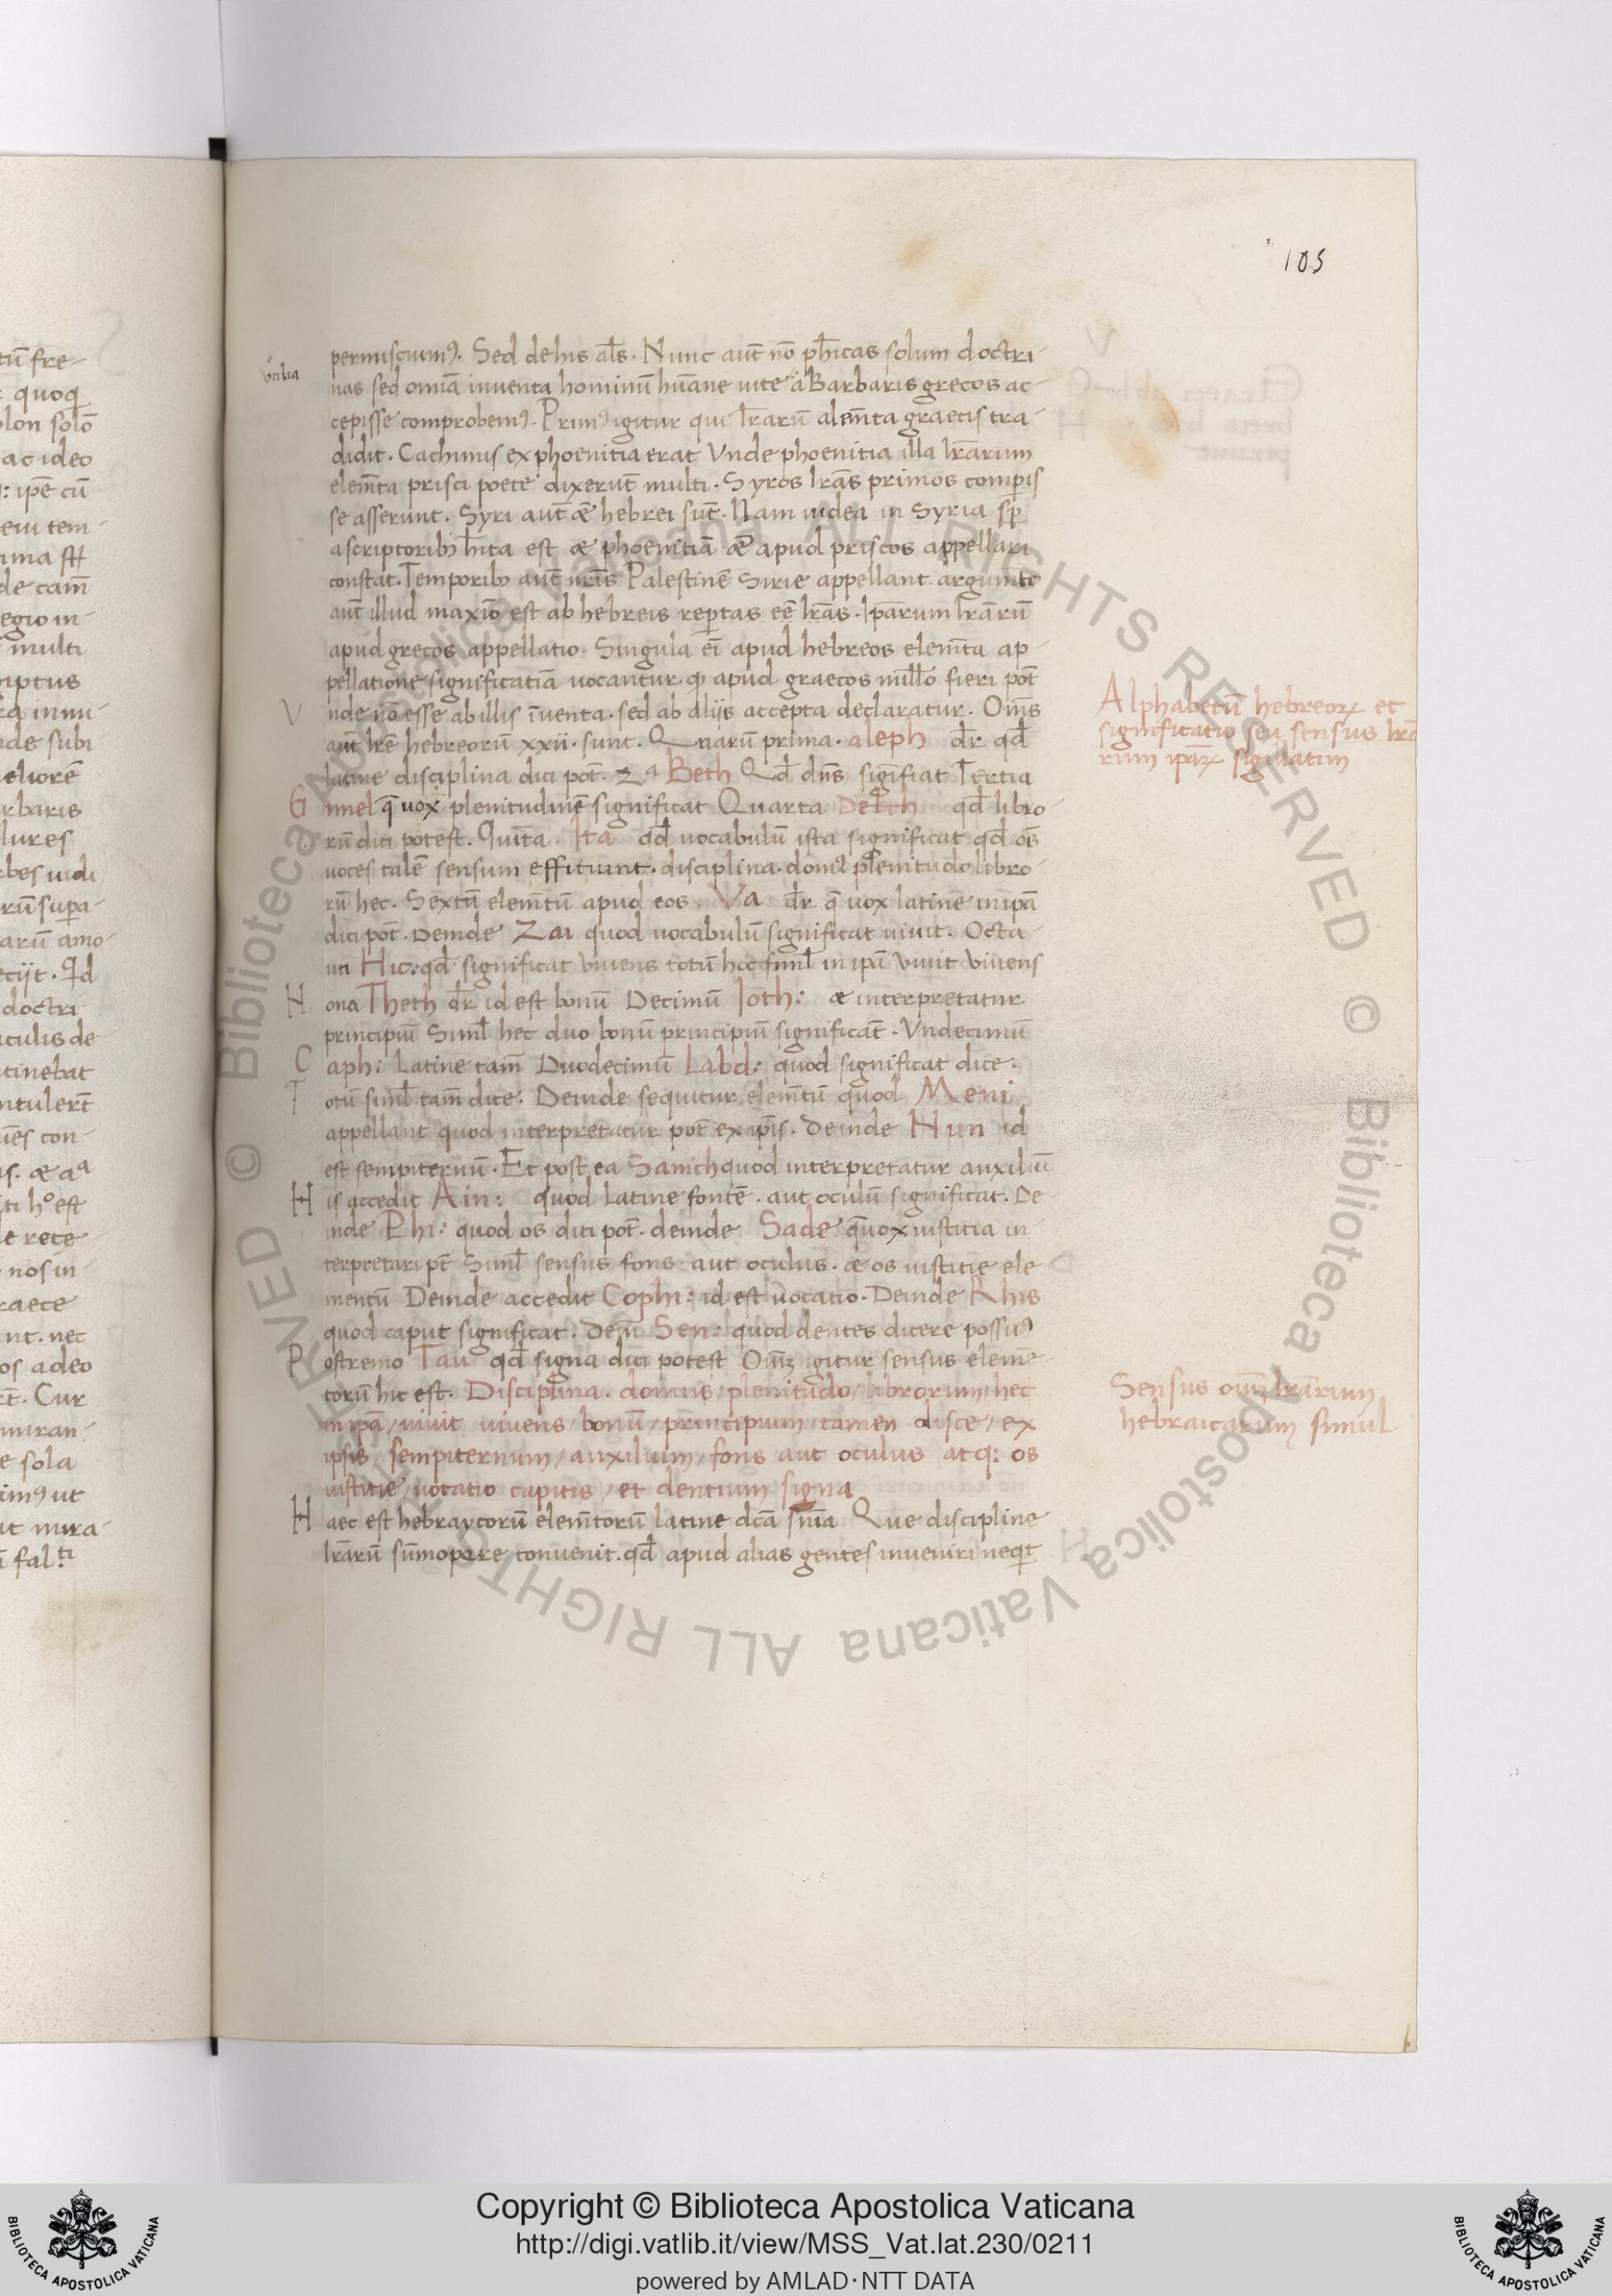 105
permiscuimꝰ. Sed de his al̄s. Nunc aut̄ nō ph̄icas solum doctri-
utilia
nas sed omīa inuenta hominū hūane uite a Barbaris grecos ac-
cepisse comprobemꝰ. Primꝰ igitur qui l̄rarū elem̄ta graecis tra-
didit. Cachinus ex phoenitia erat Vnde phoenitia illa lr̄arum
elem̄ta prisci poete dixerūt multi. Syros lr̄as primos comp̱is
se asserunt. Syri aut̄ æ hebrei sūt. Nam iudea in Syria sp̱
a scriptoribꝫ h̄ita est æ phoenitiā æ apud priscos appellari
constat. Temporibꝫ aut̄ nr̄is Palestinē Sirie appellant. argum̄to
aut̄ illud maxīo est ab hebreis rep̱tas eē lr̄as. Ip̄arum lr̄arū
apud grecos appellatio. Singula eī apud hebreos elem̄ta ap-
pellatione significatiā uocantur. ꝙ apud graecos nullo fieri pōt
Vnde nō esse ab illis īuenta. sed ab aliis accepta declaratur. Om̄s
aut̄ lr̄e hebreorū xxii. sunt. Quarū prima. aleph dr̄ qd̄
latine disciplina dici pōt. 2ᵃ Beth Qd̄ dn̄s significat Tertia
Gimel q̄ uox plenitudinē significat Quarta Delth qd̄ libro-
rū dici potest. Quīta. Ita qd̄ uocabulū ista significat qd̄ os̄
uoces talē sensum efficiunt. disciplina. domꝰ plenitudo libro-
rū hec. Sextū elem̄tū apud eos. Va dr̄ q̄ uox latine in ip̄a
dici pōt. Deinde Zai quod uocabulū significat uiuit. Octa-
ui Hic: qd̄ significat viuens totū hoc siml̄ in ip̄a viuit viuens
Nona Theth dr̄ id est bonū Decimū Ioth: æ interpretatur
principiū Siml̄ hec duo bonū principiū significāt. Vndecimū
Caph: Latine tam̄ Duodecimū Labd: quod significat dice.
Totū siml̄ tam̄ dice. Deinde sequitur elem̄tū quod Meni
appellant quod interpretatur pōt ex ip̄is. deinde Nun id
est sempiternū. Et post ea Samch quod interpretatur auxiliū
His accedit Ain: quod Latine fontē. aut oculū significat. De-
inde Phi: quod os dici pōt. deinde Sade q̄ uox iustitia in-
terpretari pt̄ Siml̄ sensus fons aut oculus. æ os iustitie ele
mentū Deinde accedit Cophi: id est uocatio. Deinde Rhis
quod caput significat. dein̄ Sen: quod dentes dicere possuꝰ
Postremo Tau qd̄ signa dici potest Om̄iꝫ igitur sensus elem̄e-
torū hic est. Disciplina. domus/ plenitudo/ librorum/ hec
in ip̄a/ uiuit uiuens/ bonū/ principium/ tamen disce/ ex
ipsis/ sempiternum/ auxilium/ fons aut oculus atq: os
iustitie/ uocatio capitis/ et dentium signa
Haec est hebraycorū elem̄torū latine dc̄a sn̄ia Que discipline
lr̄arū sūmopere conuenit. qd̄ apud alias gentes inueniri neq̄t
Alphabetū hebreoꝝ et
significatio seu sensus lr̄a
rum ip̄aꝝ sigillatim
Sensus oīuꝫ lr̄arum
hebraicarum simul
Copyright © Biblioteca Apostolica Vaticana
http://digi.vatlib.it/view/MSS_Vat.lat.230/0211
powered by AMLAD·NTT DATA
BIBLIOTECA APOSTOLICA VATICANA
BIBLIOTECA APOSTOLICA VATICANA
© Biblioteca Apostolica Vaticana ALL RIGHTS RESERVED
© Biblioteca Apostolica Vaticana ALL RIGHTS RESERVED